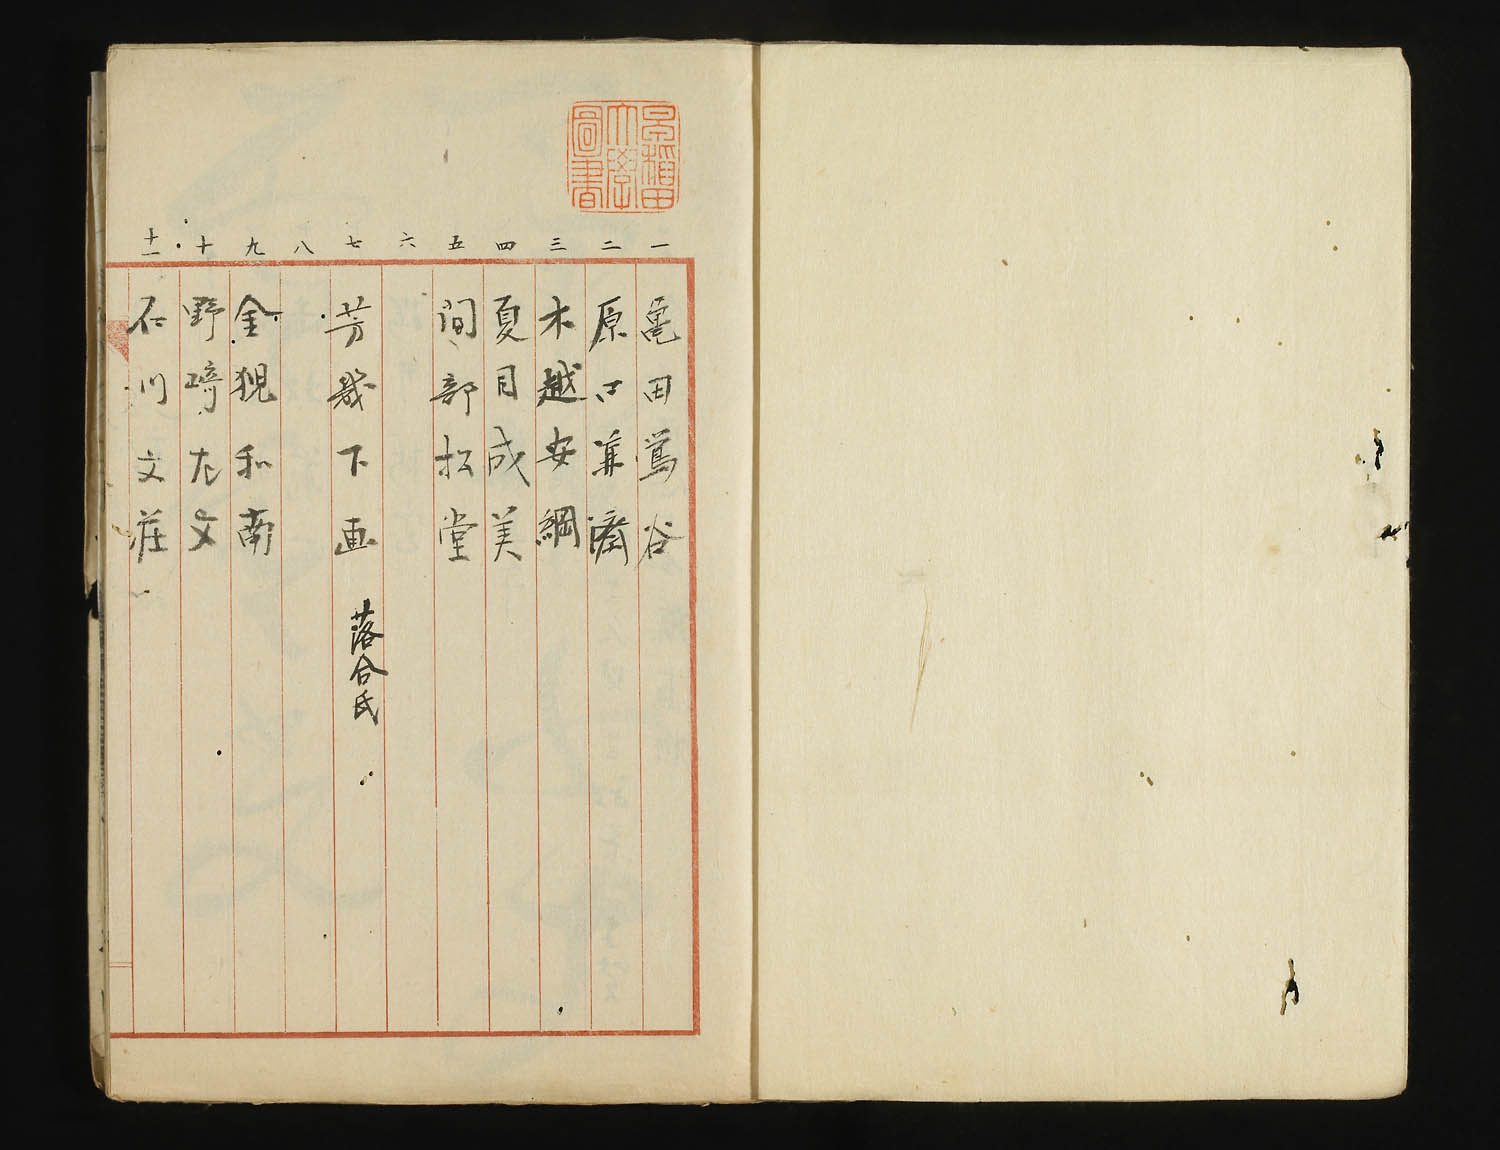 早稲田
大學
圖書
一 亀田鴬谷
二 原口兼済
三 木越安綱
四 夏目成美
五 间部松堂
六
七 芳幾下画 落合氏
八
九 金猊和南
十 野﨑左文
十一 石川文荘